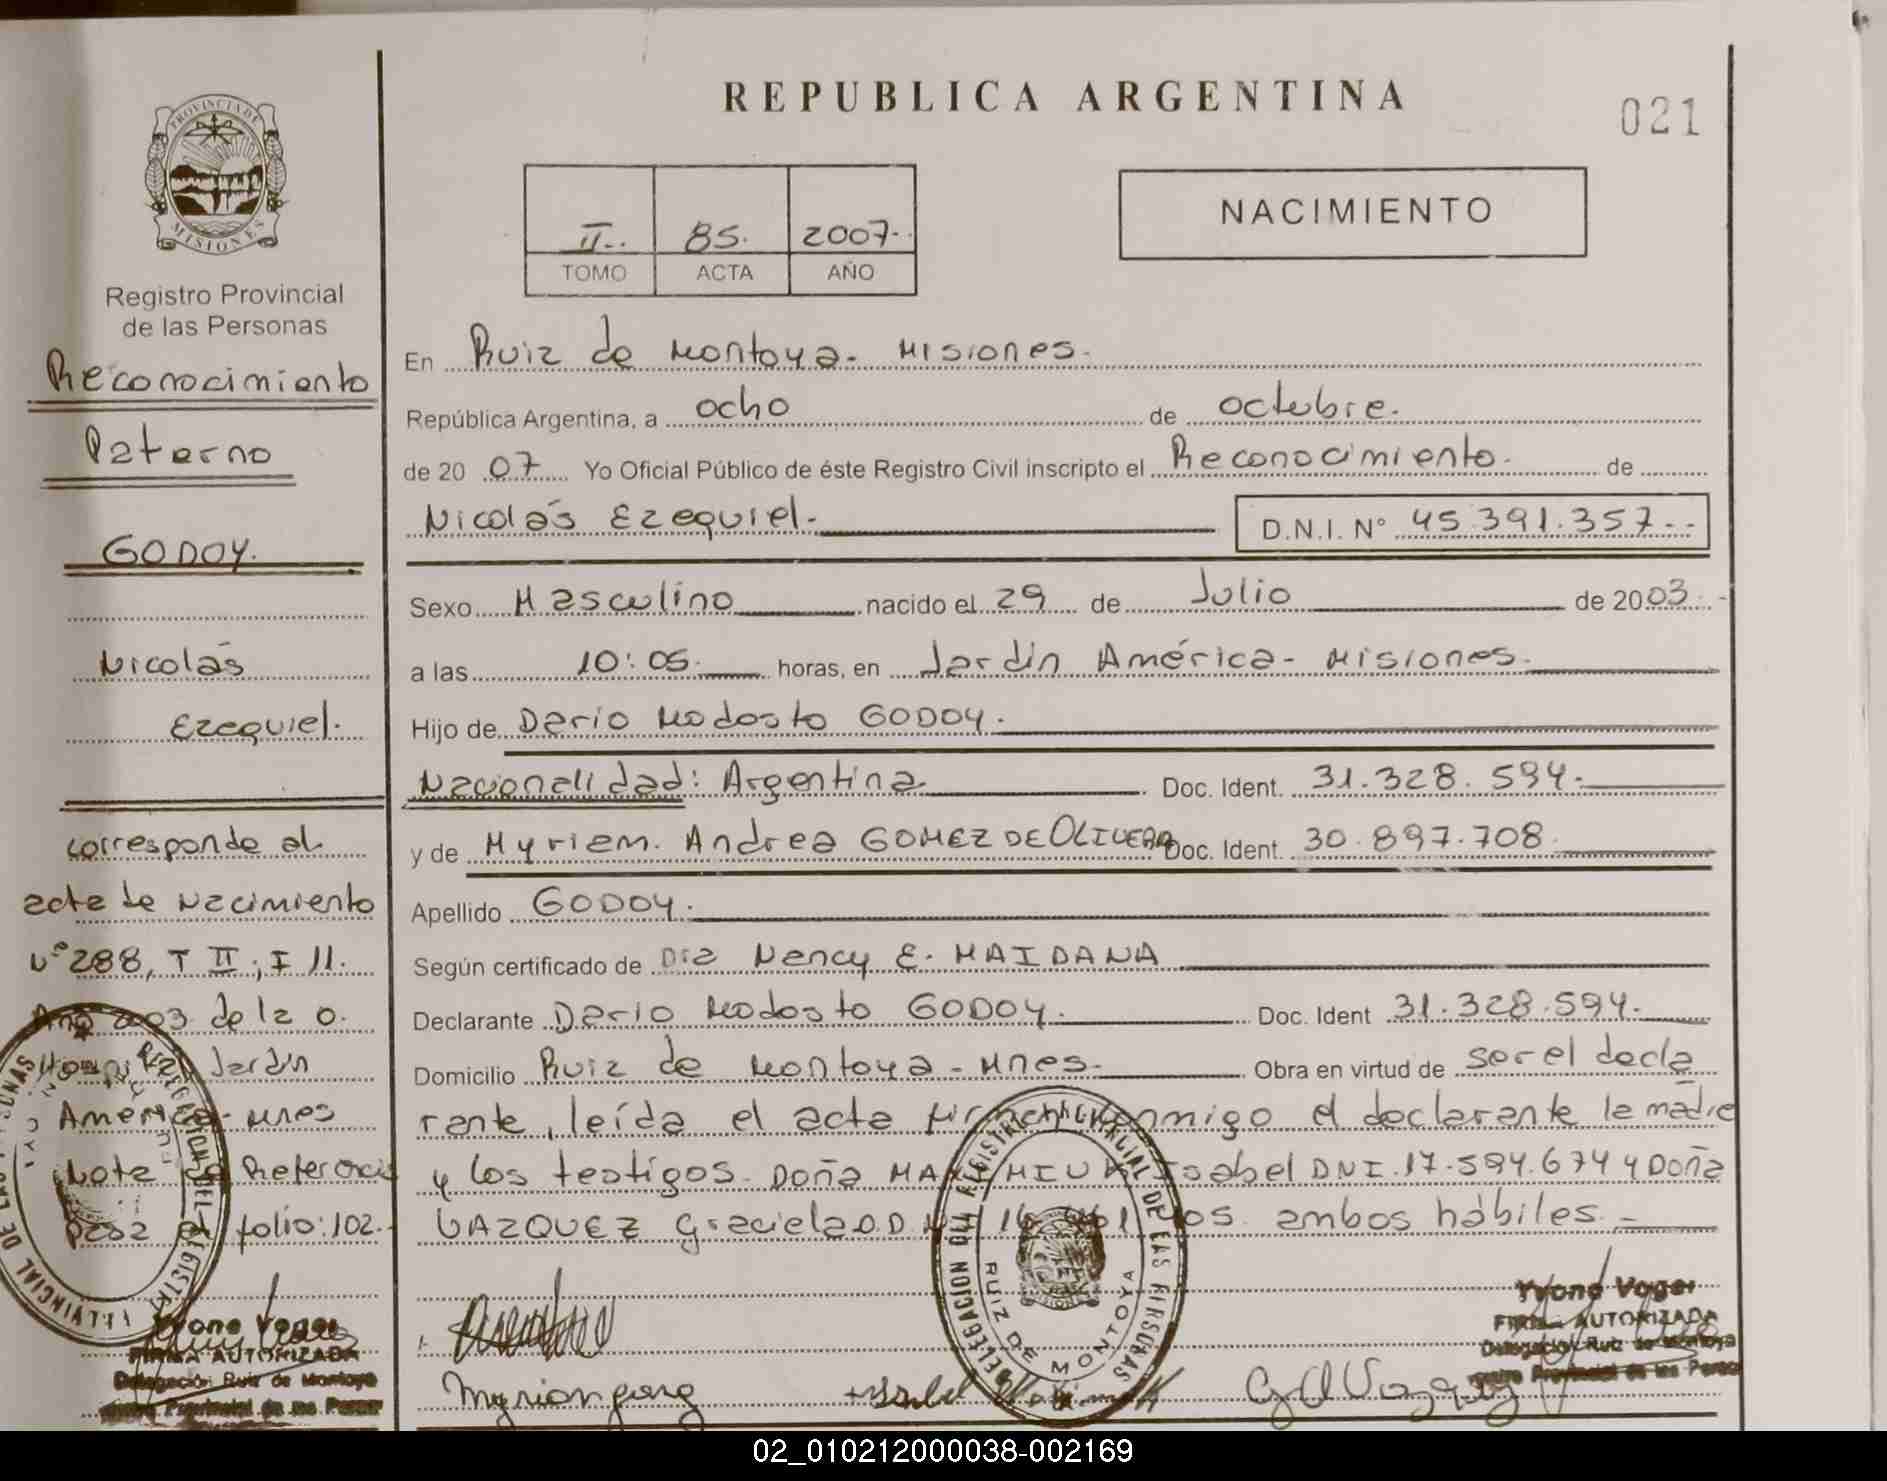 REPUBLICA ARGENTINA
021
PROVINCIA DE
MISIONES
Registro Provincial
de las Personas
II.. 85. 2007.
TOMO ACTA AÑO
NACIMIENTO
Reconocimiento
Paterno
GODOY.
Nicolás
Ezequiel.
corresponde al
acta de Nacimiento
Nº 288, T II, F 11.
Año 2003 de la O.
Jardín
América - Mnes
Nota de Referencia
folio: 102.
Yvone Voger
FIRMA AUTORIZADA
Delegación Ruiz de Montoya
En Ruiz de Montoya - Misiones.
República Argentina, a ocho de octubre.
de 20 07 Yo Oficial Público de éste Registro Civil inscripto el Reconocimiento. de
Nicolás Ezequiel. D.N.I. N° 45.391.357..
Sexo Masculino nacido el 29 de Julio de 2003.
a las 10:05. horas, en Jardín América - Misiones.
Hijo de Dario Modesto GODOY.
Nacionalidad: Argentina. Doc. Ident. 31.328.594.
y de Myriam Andrea GOMEZ DE OLIVERA Doc. Ident. 30.897.708.
Apellido GODOY.
Según certificado de Dra Nancy E. MAIDANA
Declarante Dario Modesto GODOY. Doc. Ident 31.328.594.
Domicilio Ruiz de Montoya - Mnes. Obra en virtud de ser el decla
rante, leída el acta firman conmigo el declarante la madre
y los testigos Doña Isabel DNI.17.594.674 y Doña
VAZQUEZ Graciela ambos hábiles. -
DELEGACION DEL REGISTRO PROVINCIAL DE LAS PERSONAS
RUIZ DE MONTOYA
Yvone Voger
FIRMA AUTORIZADA
Delegación Ruiz de Montoya
02_010212000038-002169